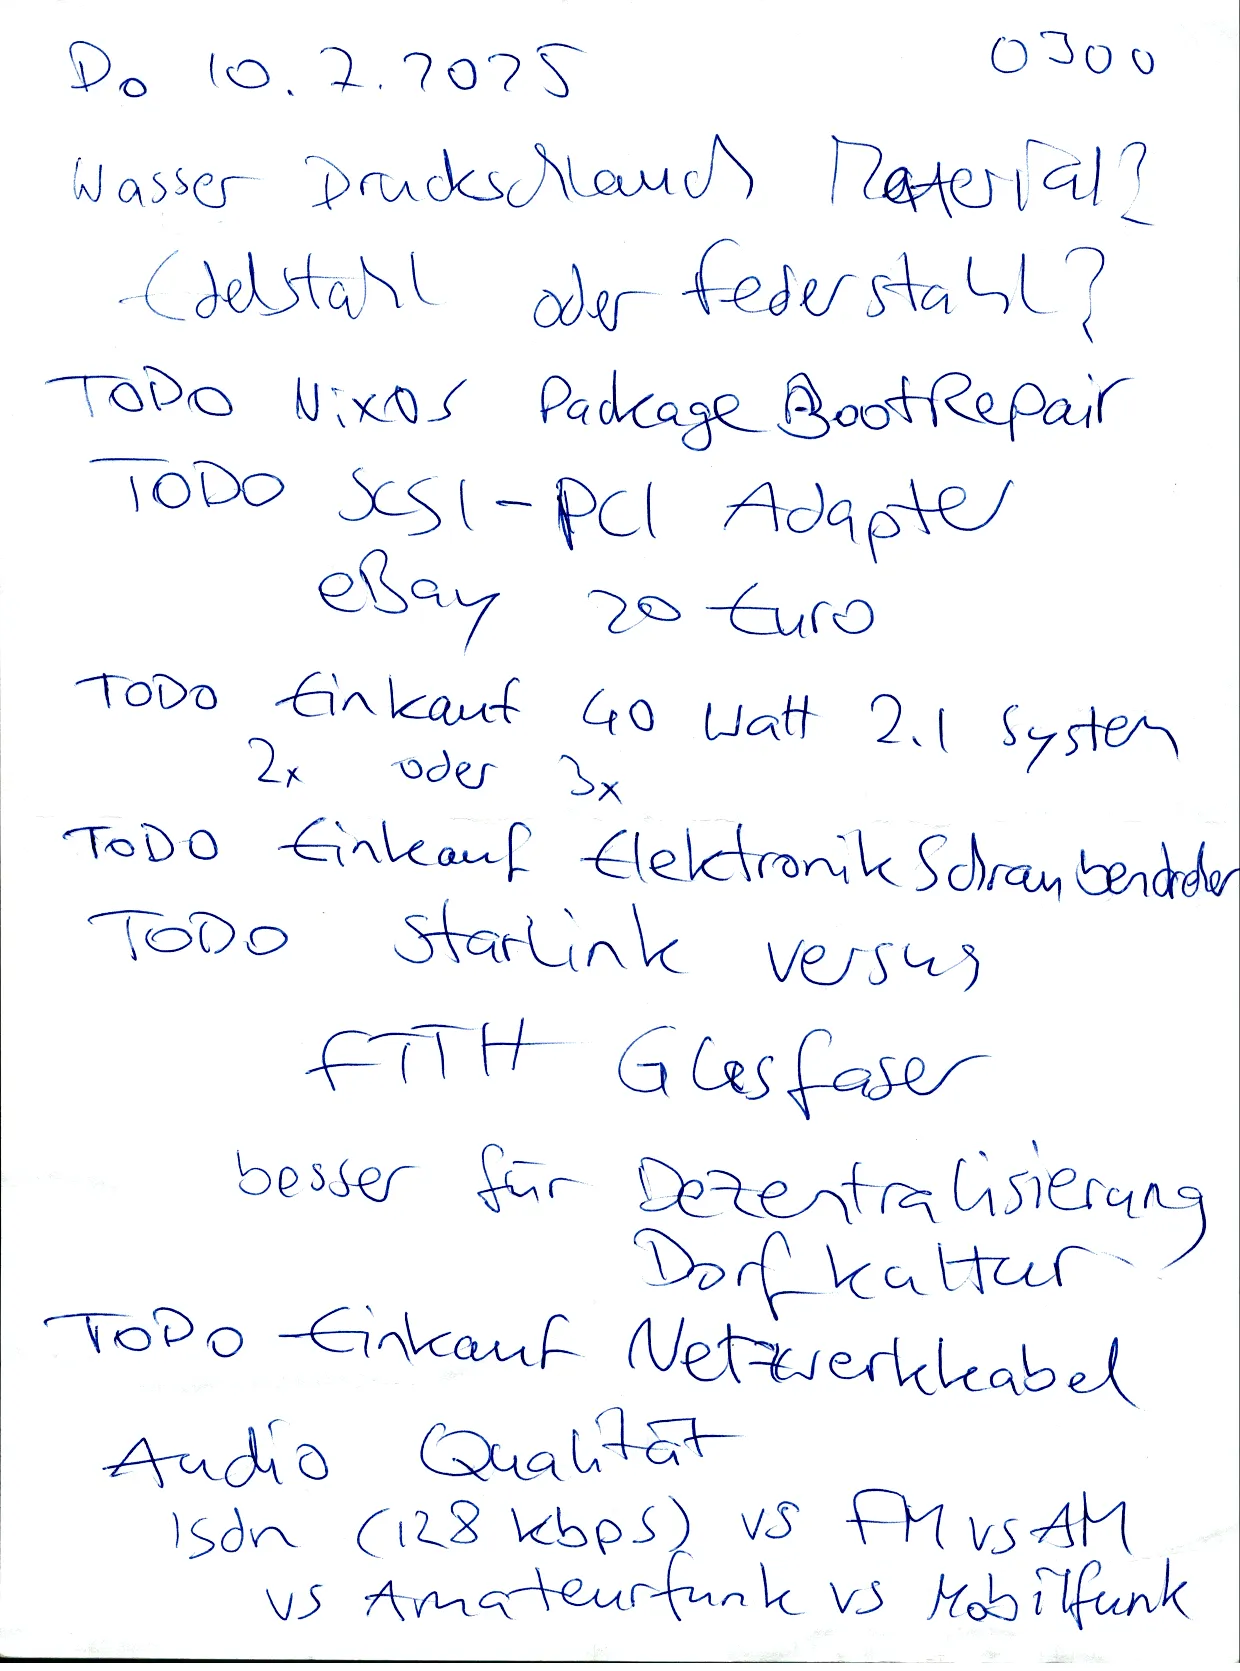 Do 10.7.2025 0300
Wasser Druckschlauch Material?
Edelstahl oder Federstahl?
TODO NixOS Package BootRepair
TODO SCSI-PCI Adapter
eBay 20 Euro
TODO Einkauf 40 Watt 2.1 System
2x oder 3x
TODO Einkauf Elektronik Schraubendreher
TODO Starlink versus
FTTH Glasfaser
besser für Dezentralisierung
Dorfkultur
TODO Einkauf Netzwerkkabel
Audio Qualität
Isdn (128 kbps) vs FM vs AM
vs Amateurfunk vs Mobilfunk